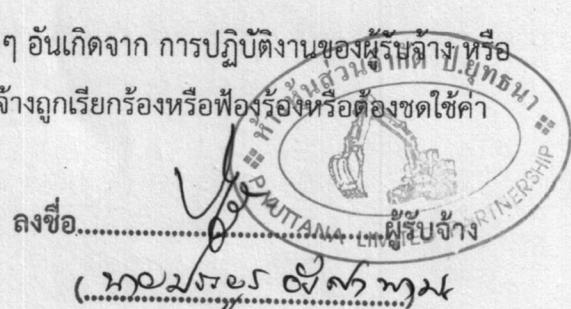 ๆ อันเกิดจาก การปฏิบัติงานของผู้รับจ้าง หรือ
จ้างถูกเรียกร้องหรือฟ้องร้องหรือต้องชดใช้ค่า
ห้างหุ้นส่วนจำกัด ป.ยุทธนา
P.YUTTANA LIMITED PARTNERSHIP
ลงชื่อ..............................ผู้รับจ้าง
(นาย